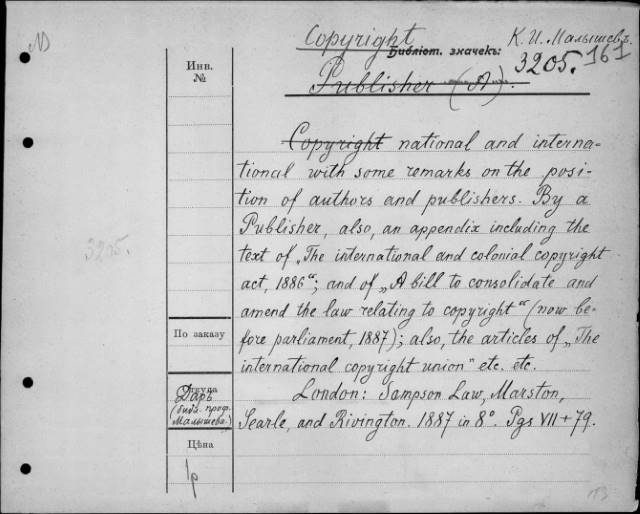 N
Copyright
К. И. Малышевъ.
Библіот. значекъ:
3205. 161
Publisher (A).
Инв.
№
Copyright national and interna-
tional with some remarks on the posi-
tion of authors and publishers. By a
Publisher, also, an appendix including the
text of „The international and colonial copyright
act, 1886“; and of „A bill to consolidate and
amend the law relating to copyright“ (now be-
fore parliament, 1887); also, the articles of „The
international copyright union“ etc. etc.
London: Sampson Law, Marston,
Searle, and Rivington. 1887 in 8°. Pgs VII + 79.
3205.
По заказу
Откуда
Даръ
(библ. проф.
Малышева.)
Цѣна
1р